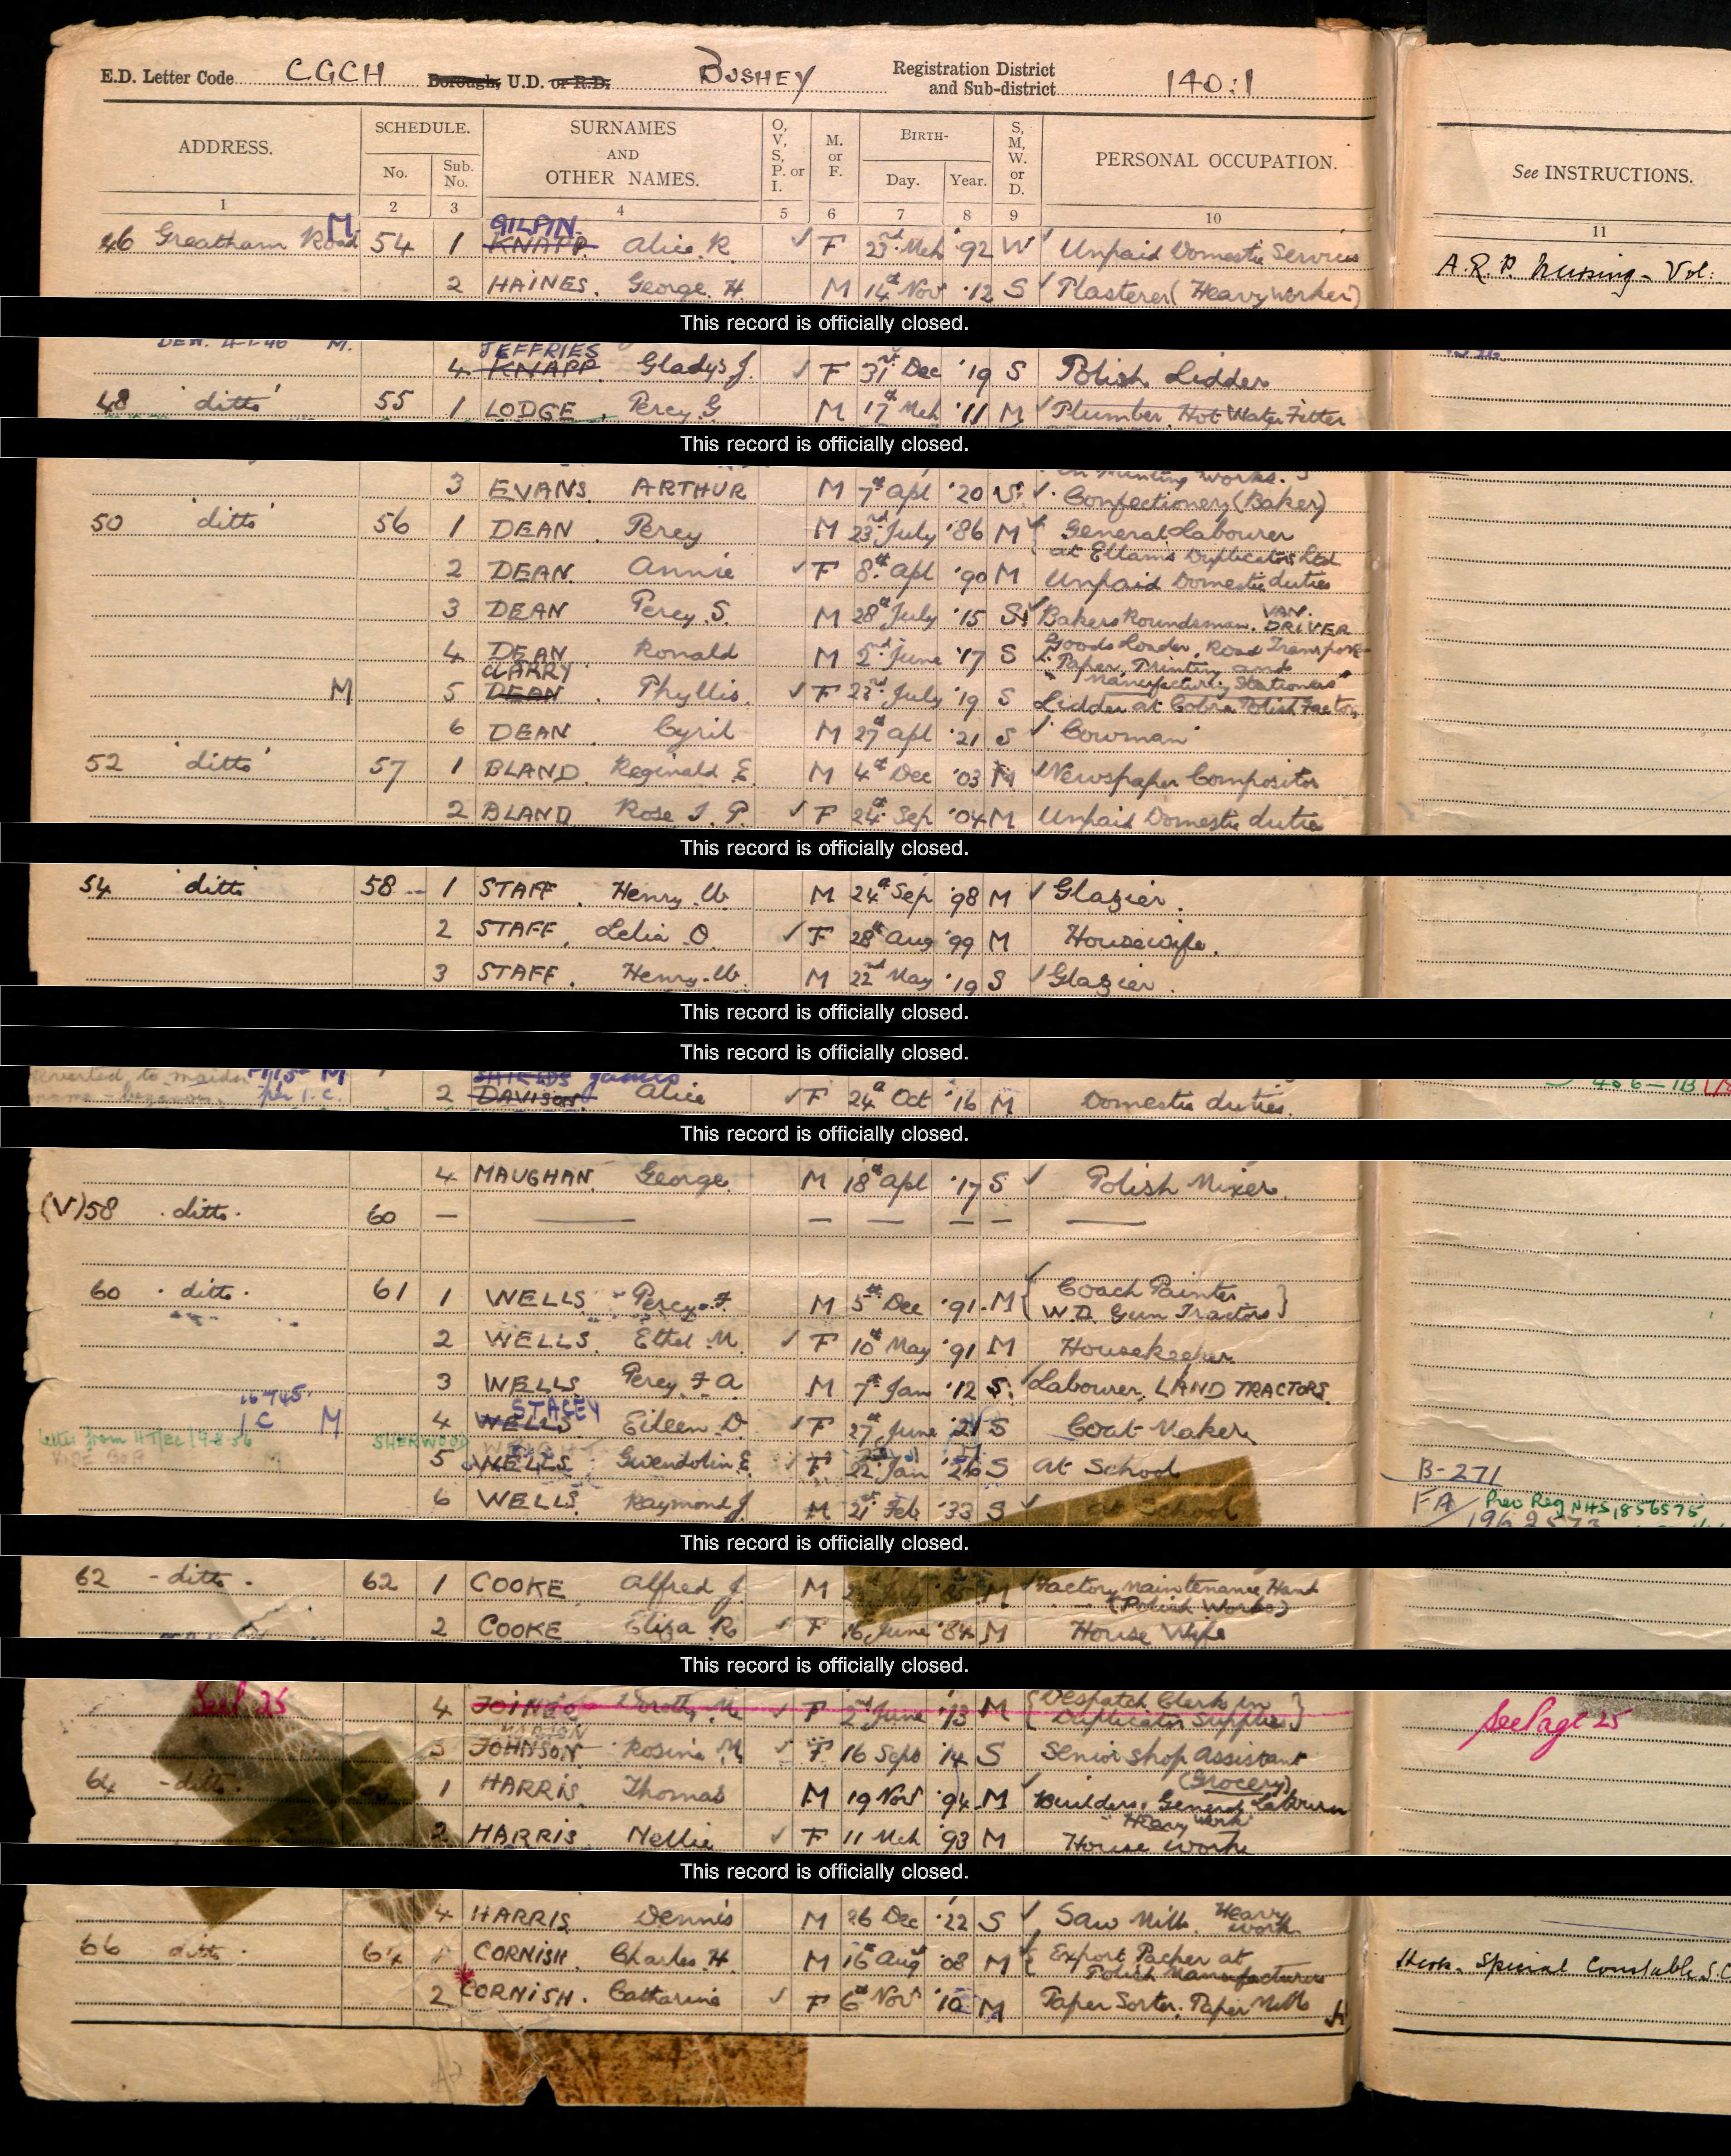 E.D. Letter Code CGCH Borough, U.D. or R.D. BUSHEY Registration District and Sub-district 140:1
ADDRESS. SCHEDULE. No. Sub. No. SURNAMES AND OTHER NAMES. O, V, S, P. or I. M. or F. BIRTH- Day. Year. S, M, W. or D. PERSONAL OCCUPATION. See INSTRUCTIONS.
1 2 3 4 5 6 7 8 9 10 11
GILPIN
46 Greatham Road M 54 1 KNAPP. Alice. R. ✓ F 23rd Mch '92 W ✓ Unpaid Domestic Services A.R.P. Nursing - Vol:
2 HAINES. George. H. M 14th Nov '12 S ✓ Plasterer (Heavy Worker)
This record is officially closed.
M. JEFFRIES
4 KNAPP. Gladys J. ✓ F 31st Dec '19 S Polish Lidder
48 ditto 55 1 LODGE. Percy. G M 17th Mch '11 M ✓ Plumber, Hot Water Fitter
This record is officially closed.
3 EVANS ARTHUR M 7th Apl '20 S. ✓ Confectionery (Baker)
50 ditto 56 1 DEAN. Percy M 23rd July '86 M ✓ General Labourer
at Ellams Duplicators Ltd
2 DEAN. Annie ✓ F 8th Apl '90 M Unpaid Domestic duties
3 DEAN Percy. S. M 28th July '15 S ✓ Bakers Roundsman. VAN DRIVER
4 DEAN Ronald M 2nd June '17 S Goods Loader, Road Transport
Paper, Printing and
CLARRY Manufacturing Stationers
M 5 DEAN. Phyllis. ✓ F 23rd July '19 S Lidder at Cobra Polish Factory
6 DEAN. Cyril M 27th Apl '21 S ✓ Cowman
52 ditto 57 1 BLAND. Reginald E. M 4th Dec '03 M ✓ Newspaper Compositor
2 BLAND Rose I. P. ✓ F 24th Sep '04 M Unpaid Domestic duties
This record is officially closed.
54 ditto 58 1 STAFF. Henry. W. M 24th Sep '98 M ✓ Glazier.
2 STAFF. Lelia. O. ✓ F 28th Aug '99 M Housewife.
3 STAFF. Henry. W. M 22nd May '19 S ✓ Glazier.
This record is officially closed.
This record is officially closed.
reverted to maiden M SHIELDS James
2 DAVISON Alice ✓ F 24th Oct '16 M Domestic duties.
This record is officially closed.
4 MAUGHAN. George. M 18th Apl '17 S ✓ Polish Mixer.
(V) 58 ditto. 60 — — — — — — —
60 ditto. 61 1 WELLS Percy. F. M 5th Dec '91 M ✓ { Coach Painter
W.D. Gun Tractors }
2 WELLS. Ethel. M. ✓ F 10th May '91 M Housekeeper
3 WELLS Percy. F A M 7th Jan '12 S. ✓ Labourer, LAND TRACTORS
STACEY
M 4 WELLS. Eileen. D. ✓ F 27th June '21 S Coat Maker
SHERWOOD
5 WELLS. Gwendolin E. ✓ F 22nd Jan '26 S At School B-271
6 WELLS. Raymond J. M 21st Feb. '33 S ✓ at School FA Prev Reg NHS, 856575
This record is officially closed.
62 - ditto. 62 1 COOKE. Alfred J. M M ✓ Factory Maintenance Hand
(Polish Works)
2 COOKE Eliza R. ✓ F 16 June '84 M House Wife
This record is officially closed.
See P 25 4 JOINES Dorothy. M. ✓ F 2nd June '13 M { Despatch Clerk in
Duplicator Supplies } See Page 25
5 JOHNSON Rosina. M. ✓ F 16 Sept '14 S Senior Shop Assistant
(Grocery)
64 - ditto. 1 HARRIS. Thomas M 19 Nov '94 M ✓ Builders, General Labourer
Heavy Work
2 HARRIS Nellie ✓ F 11 Mch '93 M House Work
This record is officially closed.
4 HARRIS Dennis M 26 Dec '22 S ✓ Saw Mill. Heavy work.
66 ditto. 64 1 CORNISH. Charles. H. M 16th Aug '08 M { Export Packer at
Polish Manufacturers Special Constable S.C
2 CORNISH. Catharine ✓ F 6th Nov '10 M Paper Sorter. Paper Mills